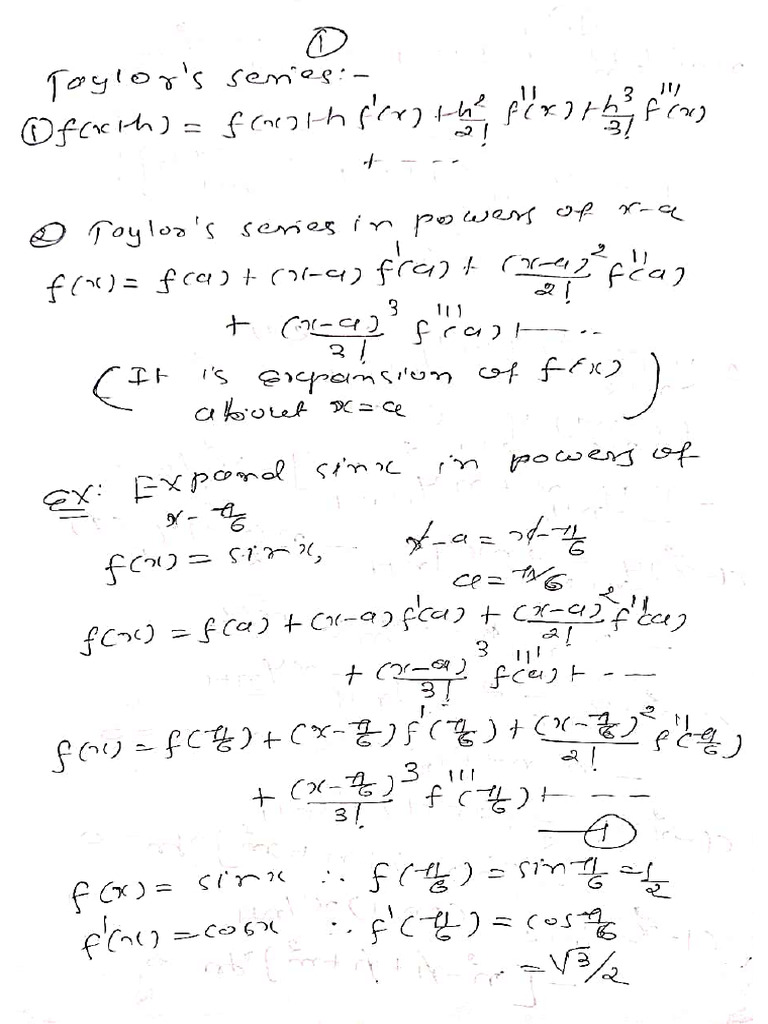 ①
Taylor's series:-
① f(x+h) = f(x)+h f'(x) + h²/2! f''(x) + h³/3! f'''(x)
+ - - -
② Taylor's series in powers of x-a
f(x) = f(a) + (x-a) f'(a) + (x-a)²/2! f''(a)
+ (x-a)³/3! f'''(a) + - - -
(It is expansion of f(x)
about x=a)
Ex: Expand sinx in powers of
x-π/6
f(x) = sinx, x-a = x-π/6
a = π/6
f(x) = f(a) + (x-a) f'(a) + (x-a)²/2! f''(a)
+ (x-a)³/3! f'''(a) + - - -
f(x) = f(π/6) + (x-π/6) f'(π/6) + (x-π/6)²/2! f''(π/6)
+ (x-π/6)³/3! f'''(π/6) + - - -
—①
f(x) = sinx ∴ f(π/6) = sin π/6 = 1/2
f'(x) = cosx ∴ f'(π/6) = cos π/6
= √3/2